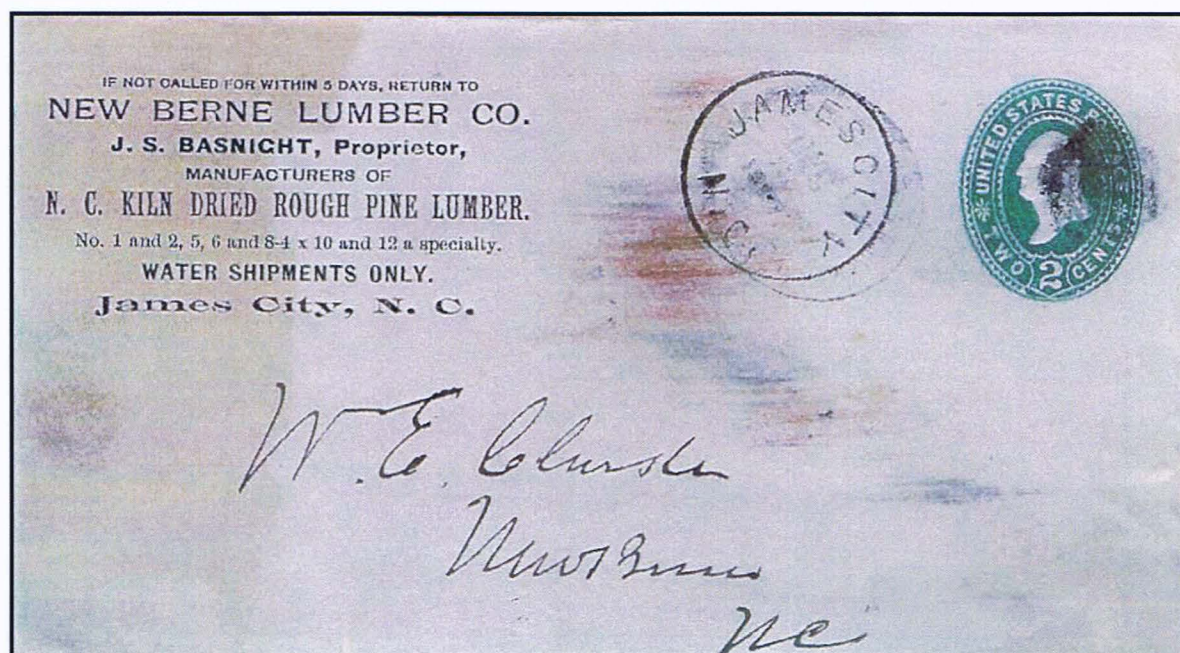 IF NOT CALLED FOR WITHIN 5 DAYS, RETURN TO
NEW BERNE LUMBER CO.
J. S. BASNIGHT, Proprietor,
MANUFACTURERS OF
N. C. KILN DRIED ROUGH PINE LUMBER.
No. 1 and 2, 5, 6 and 8-4 x 10 and 12 a specialty.
WATER SHIPMENTS ONLY.
James City, N. C.
JAMES CITY
N.C.
UNITED STATES
TWO 2 CENTS
W. E.
New Berne
NC